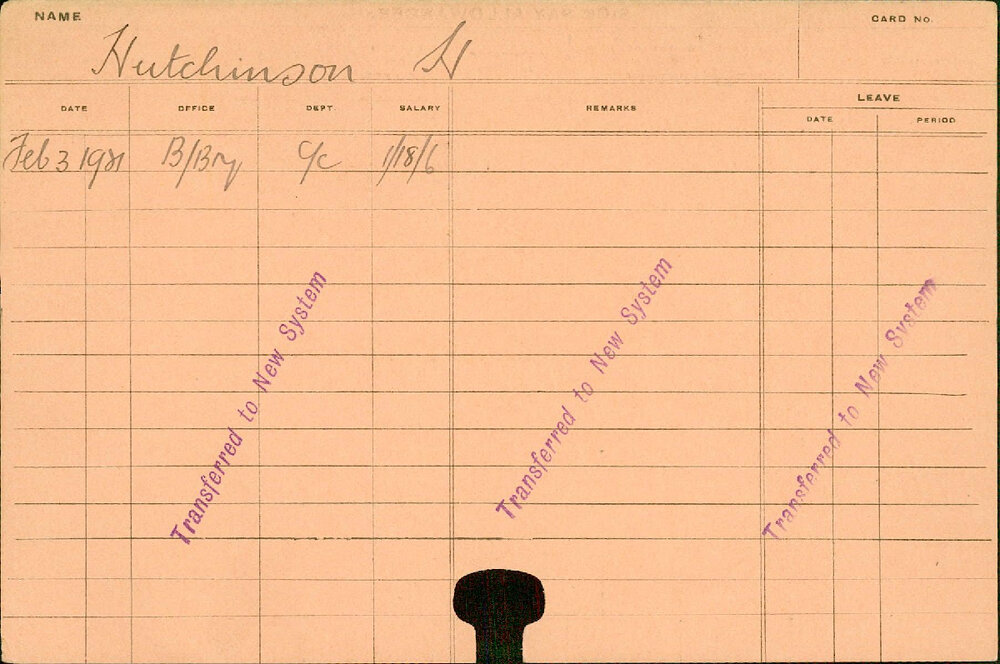 NAME
CARD No.
Hutchinson H
DATE OFFICE DEPT SALARY REMARKS LEAVE
DATE PERIOD
Feb 3 1921 B/Bry C/c 1/18/6
Transferred to New System
Transferred to New System
Transferred to New System